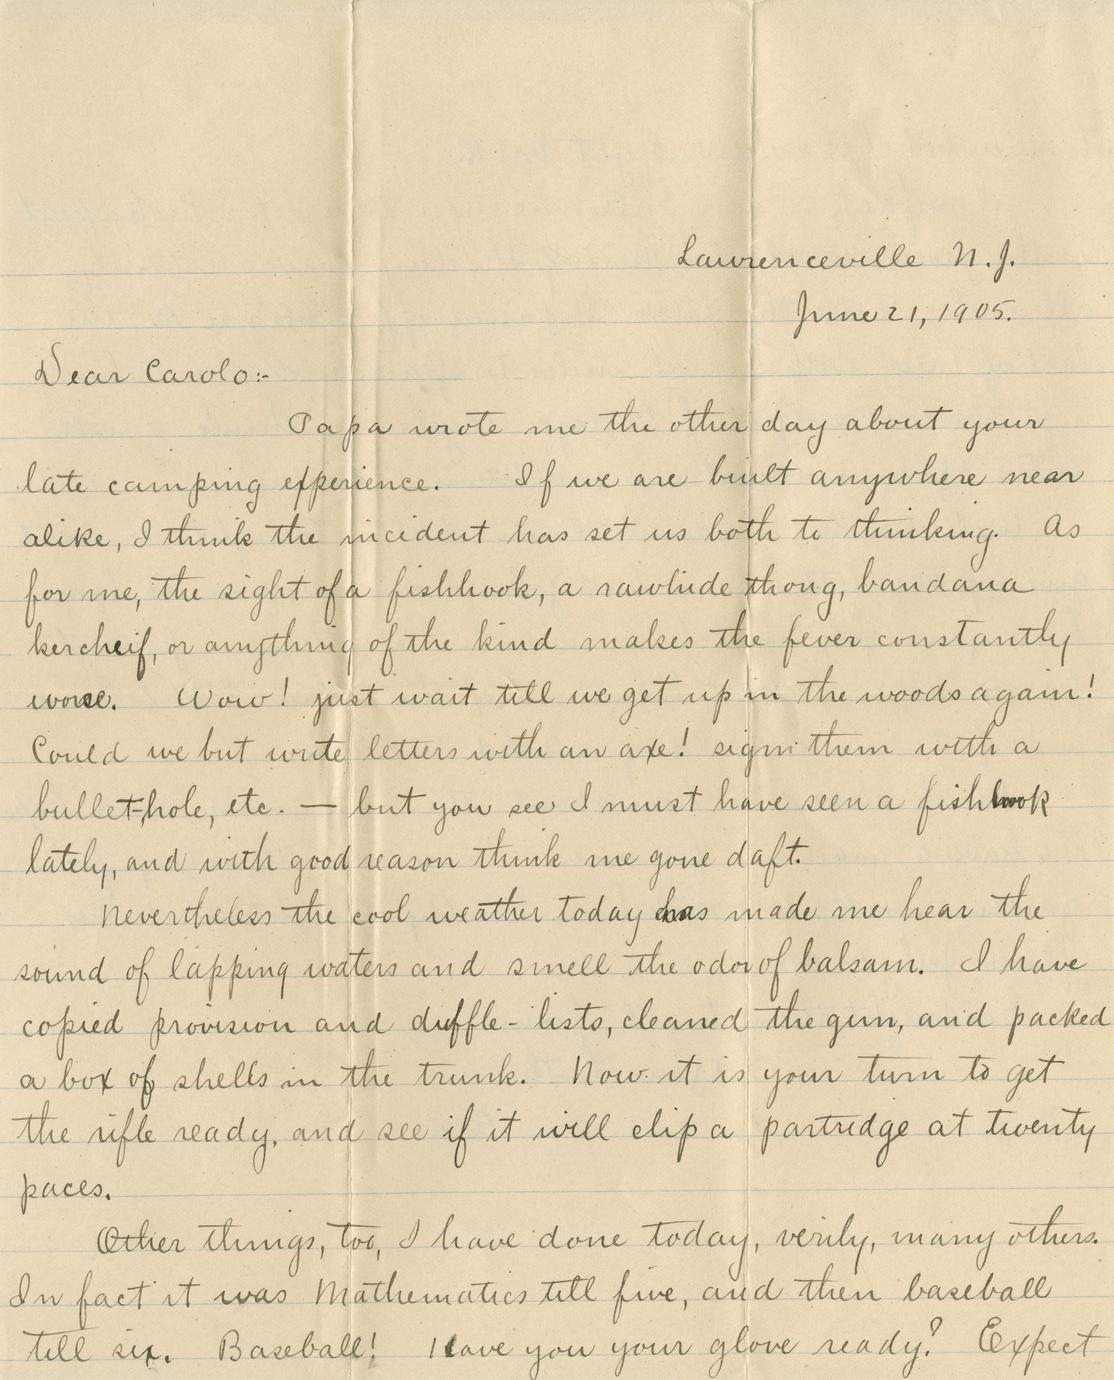 Lawrenceville N.J.
June 21, 1905.
Dear Carolo:-
Papa wrote me the other day about your
late camping experience. If we are built anywhere near
alike, I think the incident has set us both to thinking. As
for me, the sight of a fishhook, a rawhide thong, bandana
kercheif, or anything of the kind makes the fever constantly
worse. Wow! just wait till we get up in the woods again!
Could we but write letters with an axe! sign them with a
bullet-hole, etc. — but you see I must have seen a fishhook
lately, and with good reason think me gone daft.
Nevertheless the cool weather today has made me hear the
sound of lapping waters and smell the odor of balsam. I have
copied provision and duffle-lists, cleaned the gun, and packed
a box of shells in the trunk. Now it is your turn to get
the rifle ready, and see if it will clip a partridge at twenty
paces.
Other things, too, I have done today, verily, many others.
In fact it was Mathematics till five, and then baseball
till six. Baseball! Have you your glove ready? Expect